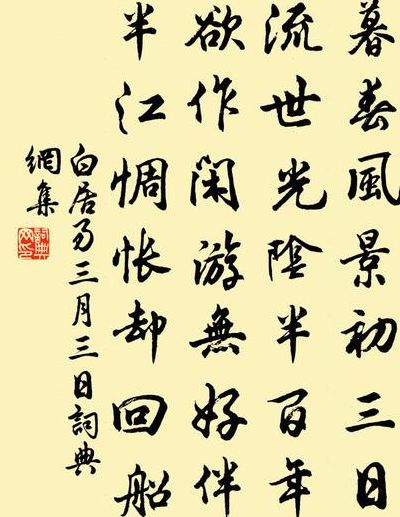 暮春風景初三日
流世光陰半百年
欲作閑游無好伴
半江惆悵却回船
白居易三月三日詞典
網集